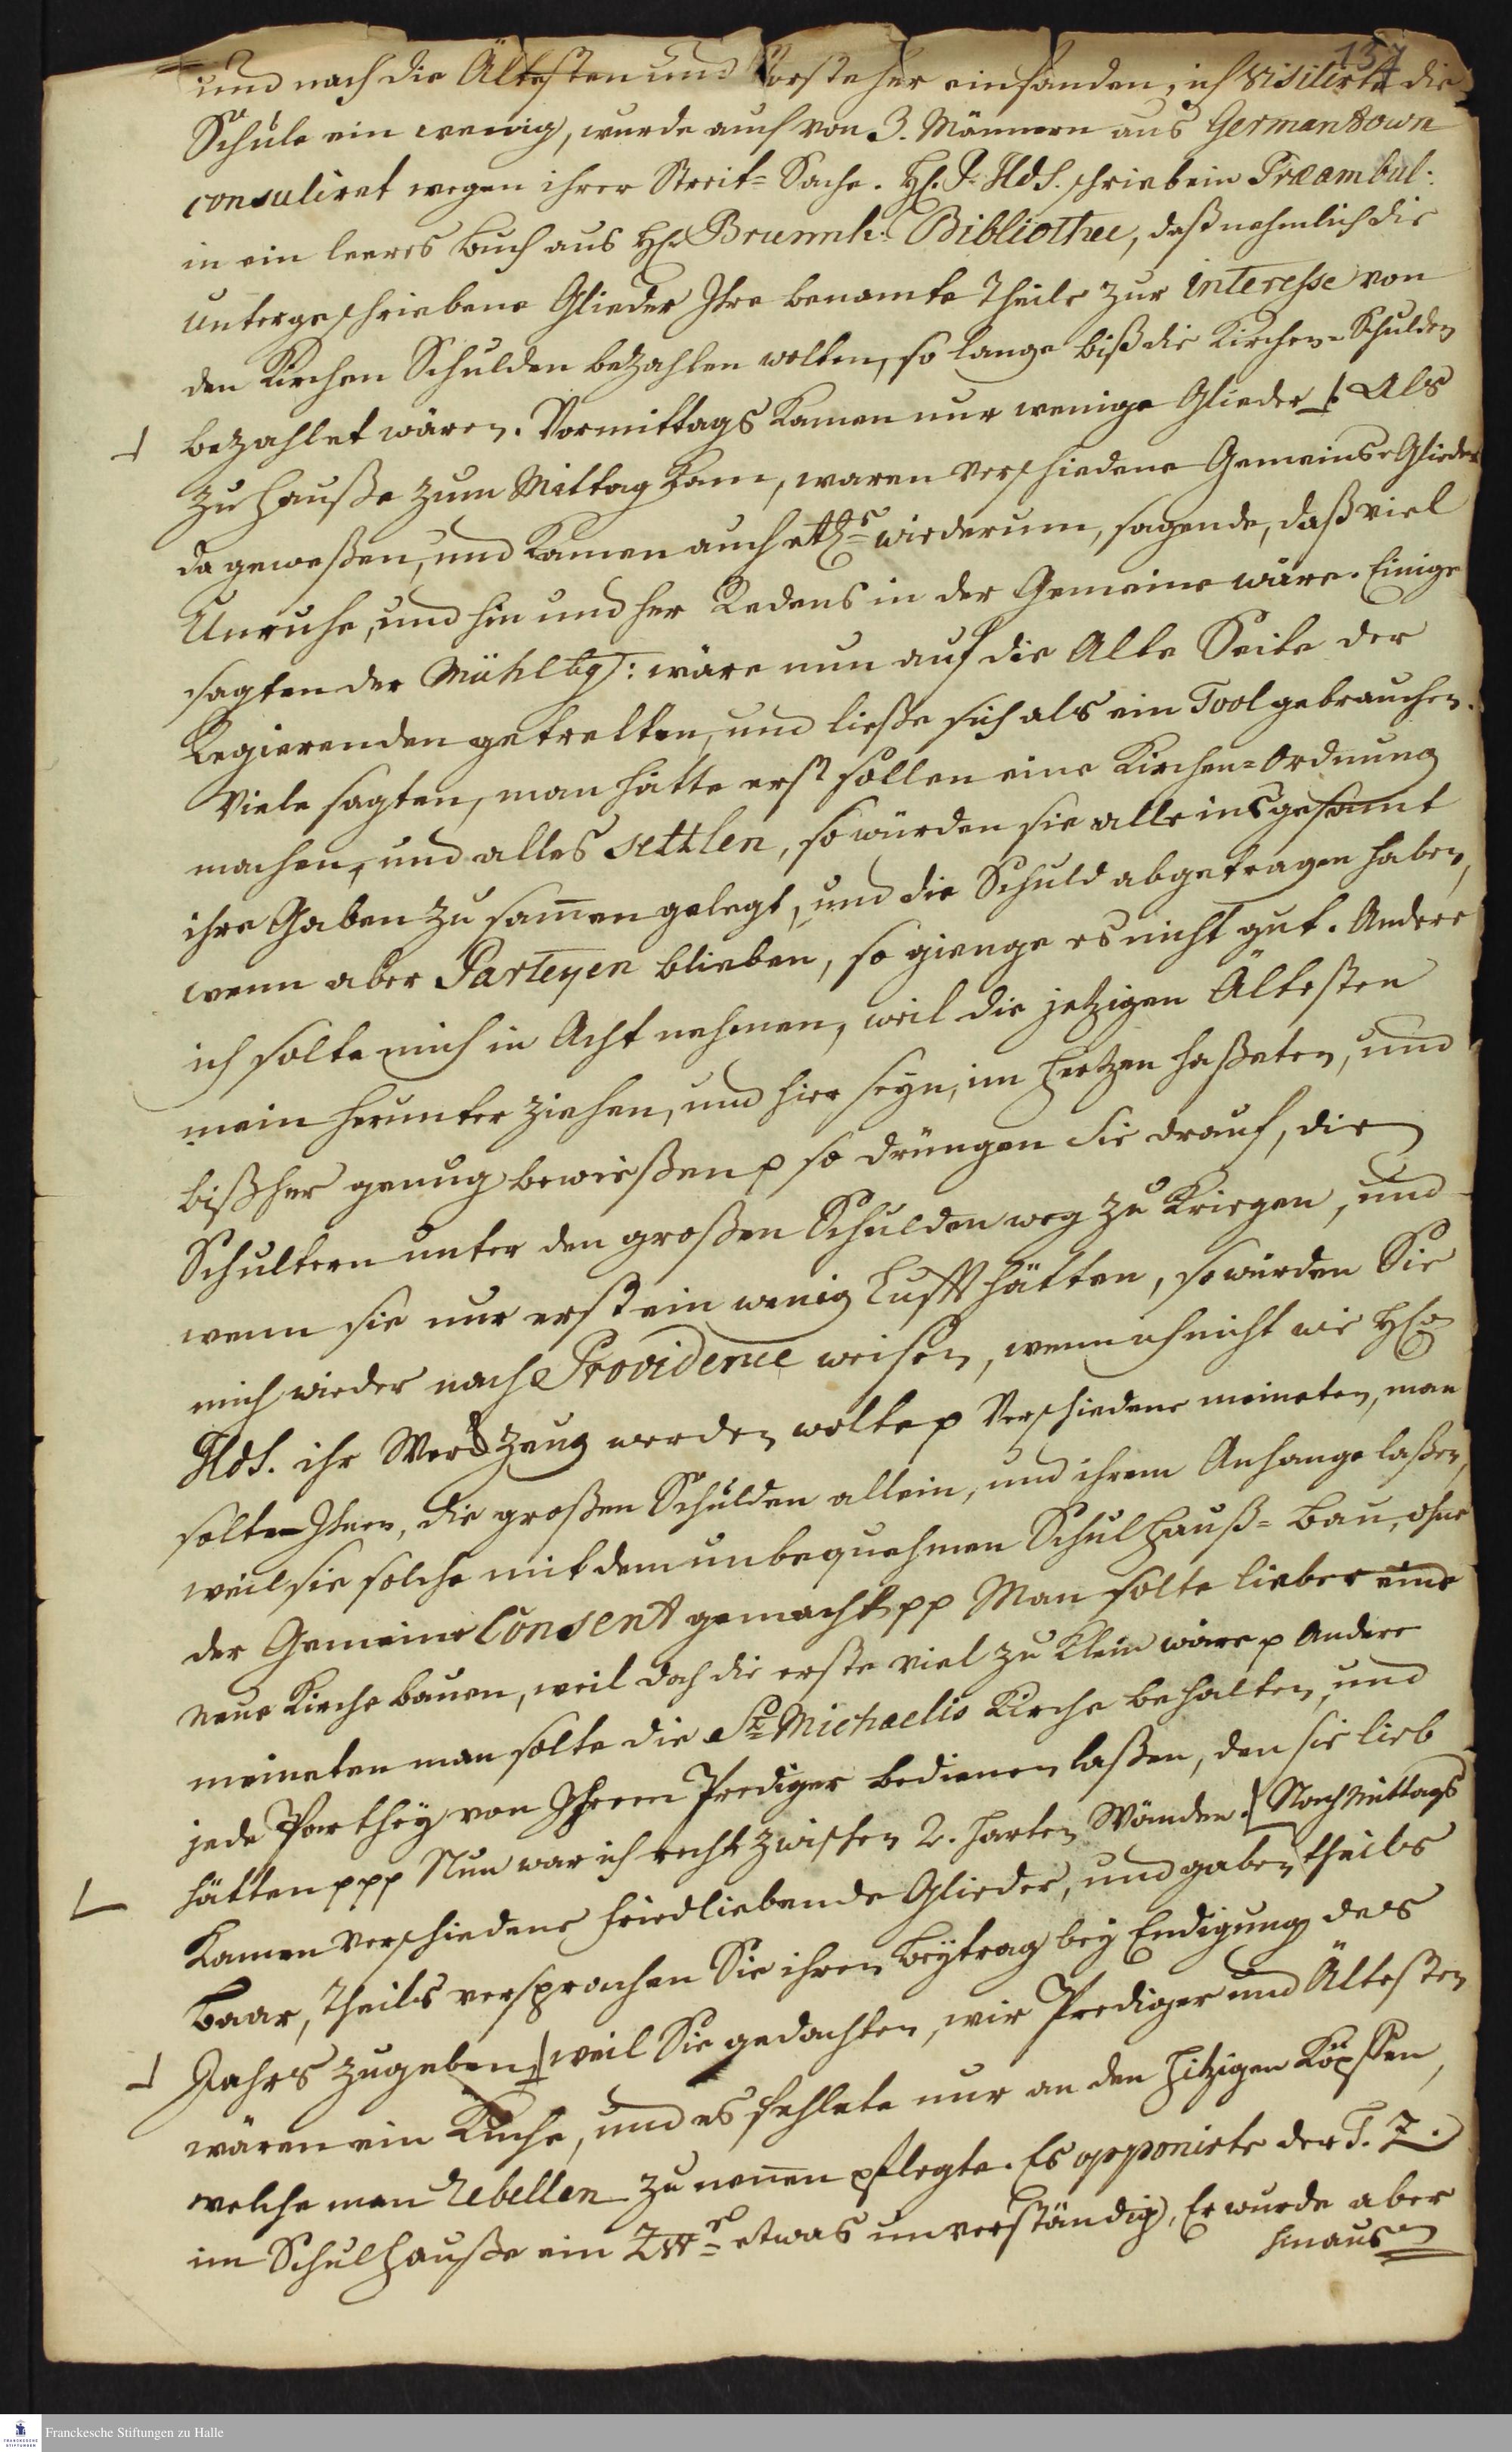 137
und nach die Ältesten und Vorsteher einfanden, ich visitirte die
Schule ein wenig, wurde auch von 3. Männern aus Germantown
consuliret wegen ihrer Streit= Sache. H. P. Hds. schrieb ein Præambul:
in ein leeres Buch aus H. Brunnh: Bibliothec, daß nehmlich die
untergeschriebene Glieder Ihre benamte Theile zur Interesse von
den Kirchen Schulden bezahlen wolten, so lange biß die Kirchen-Schulden
bezahlet wären. Vormittags kamen nur wenige Glieder. Als
zu Hauße zum Mittag kam, waren verschiedene Gemeins-Glieder
da geweßen, und kamen auch wiederum, sagende, daß viel
Unruhe, und hin und her Redens in der Gemeine wäre. Einige
sagten der Mühlbg: wäre nun auf die Alte Seite der
Regierenden getretten, und ließe sich als ein Tool gebrauchen.
Viele sagten, man hätte erst sollen eine Kirchen=Ordnung
machen, und alles settlen, so würden sie alle insgesamt
ihre Gaben zusamen gelegt, und die Schuld abgetragen haben,
wenn aber Parteyen blieben, so gienge es nicht gut. Andere
ich solte mich in Acht nehmen, weil die jetzigen Ältesten
mein herunter ziehen, und hier seyn, im Hertzen haßeten, und
bißher genug bewießen p so drüngen Sie drauf, die
Schultern unter den großen Schulden weg zu kriegen, und
wenn sie nur erst ein wenig Lufft hätten, so würden Sie
mich wieder nach Providence weisen, wenn ich nicht wie H.
Hds. ihr Werckzeug werden wolte p Verschiedene meineten, man
solte Ihnen, die großen Schulden allein, und ihrem Anhange laßen,
weil sie solche mit dem unbequehmen Schulhauß= Bau, ohne
der Gemeine Consent gemacht pp Man solte lieber eine
neue Kirche bauen, weil doch die erste viel zu klein wäre p Andere
meineten man solte die St. Michaelis Kirche behalten, und
jede Parthey von Ihrem Prediger bedienen laßen, den sie lieb
hätten ppp Nun war ich recht zwischen 2. harten Wänden. Nach Mittags
kamen verschiedene friedliebende Glieder, und gaben theils
baar, theils versprachen Sie ihren Beytrag bey Endigung des
Jahrs zugeben, weil Sie gedachten, wir Prediger und Ältesten
wären ein Kuche, und es fehlete nur an den hitzigen Köpffen,
welche man Rebellen zu nenen pflegte. Es opponirte der T. Z.
im Schulhauße ein etwas unverständig, Er wurde aber
hinaus
Franckesche Stiftungen zu Halle